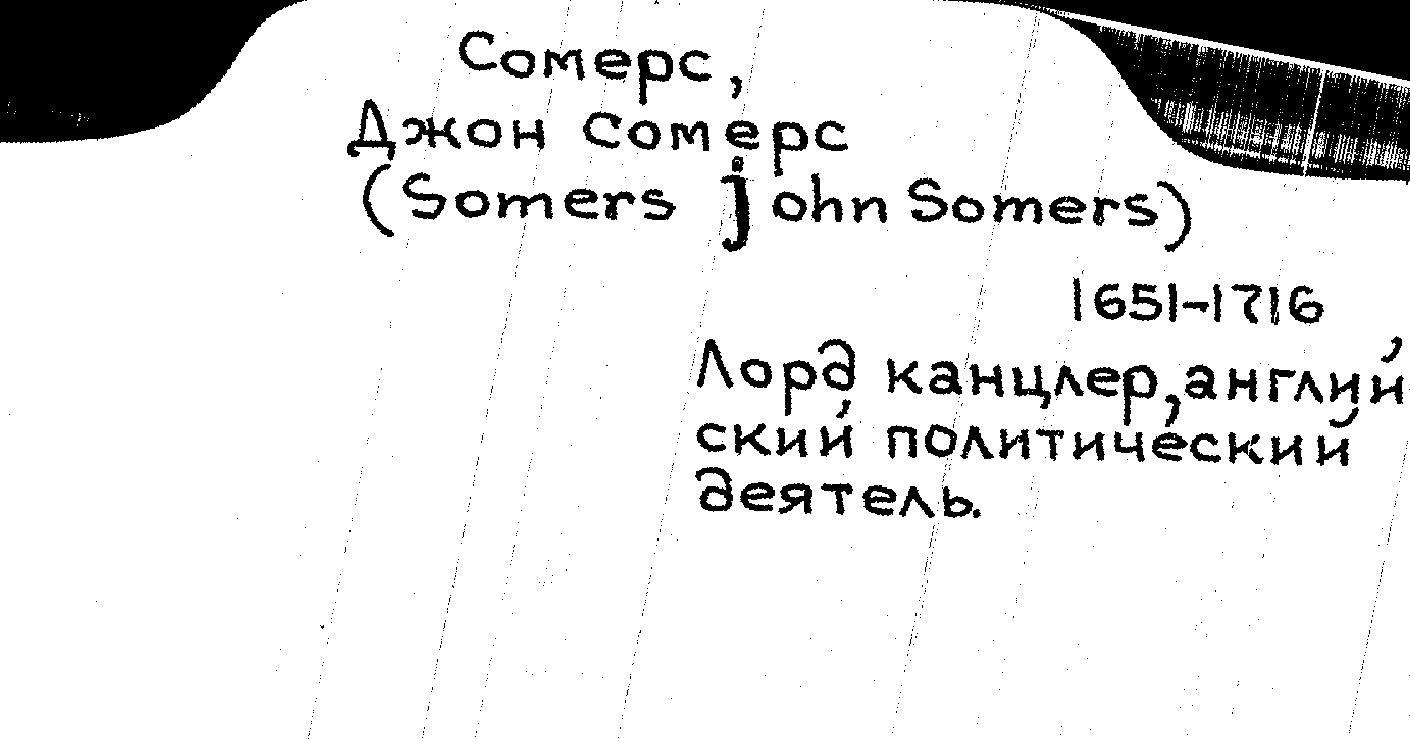 Сомерс,
Джон Сомерс
(Somers john Somers)
1651-1716
Лорд канцлер, англий
ский политический
деятель.